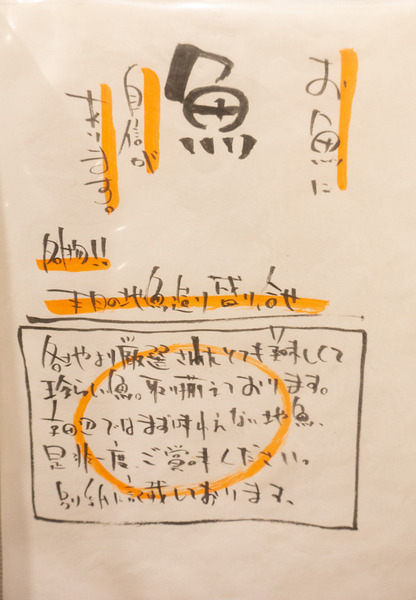 魚
お魚に
自信が
あります。
名物!!
本日の地魚造り盛り合せ
各地より厳選されたとても美味しくて
珍らしい魚。取り揃えております。
本日辺ではまず味わえない地魚、
是非一度、ご賞味ください。
別紙に記載しております、